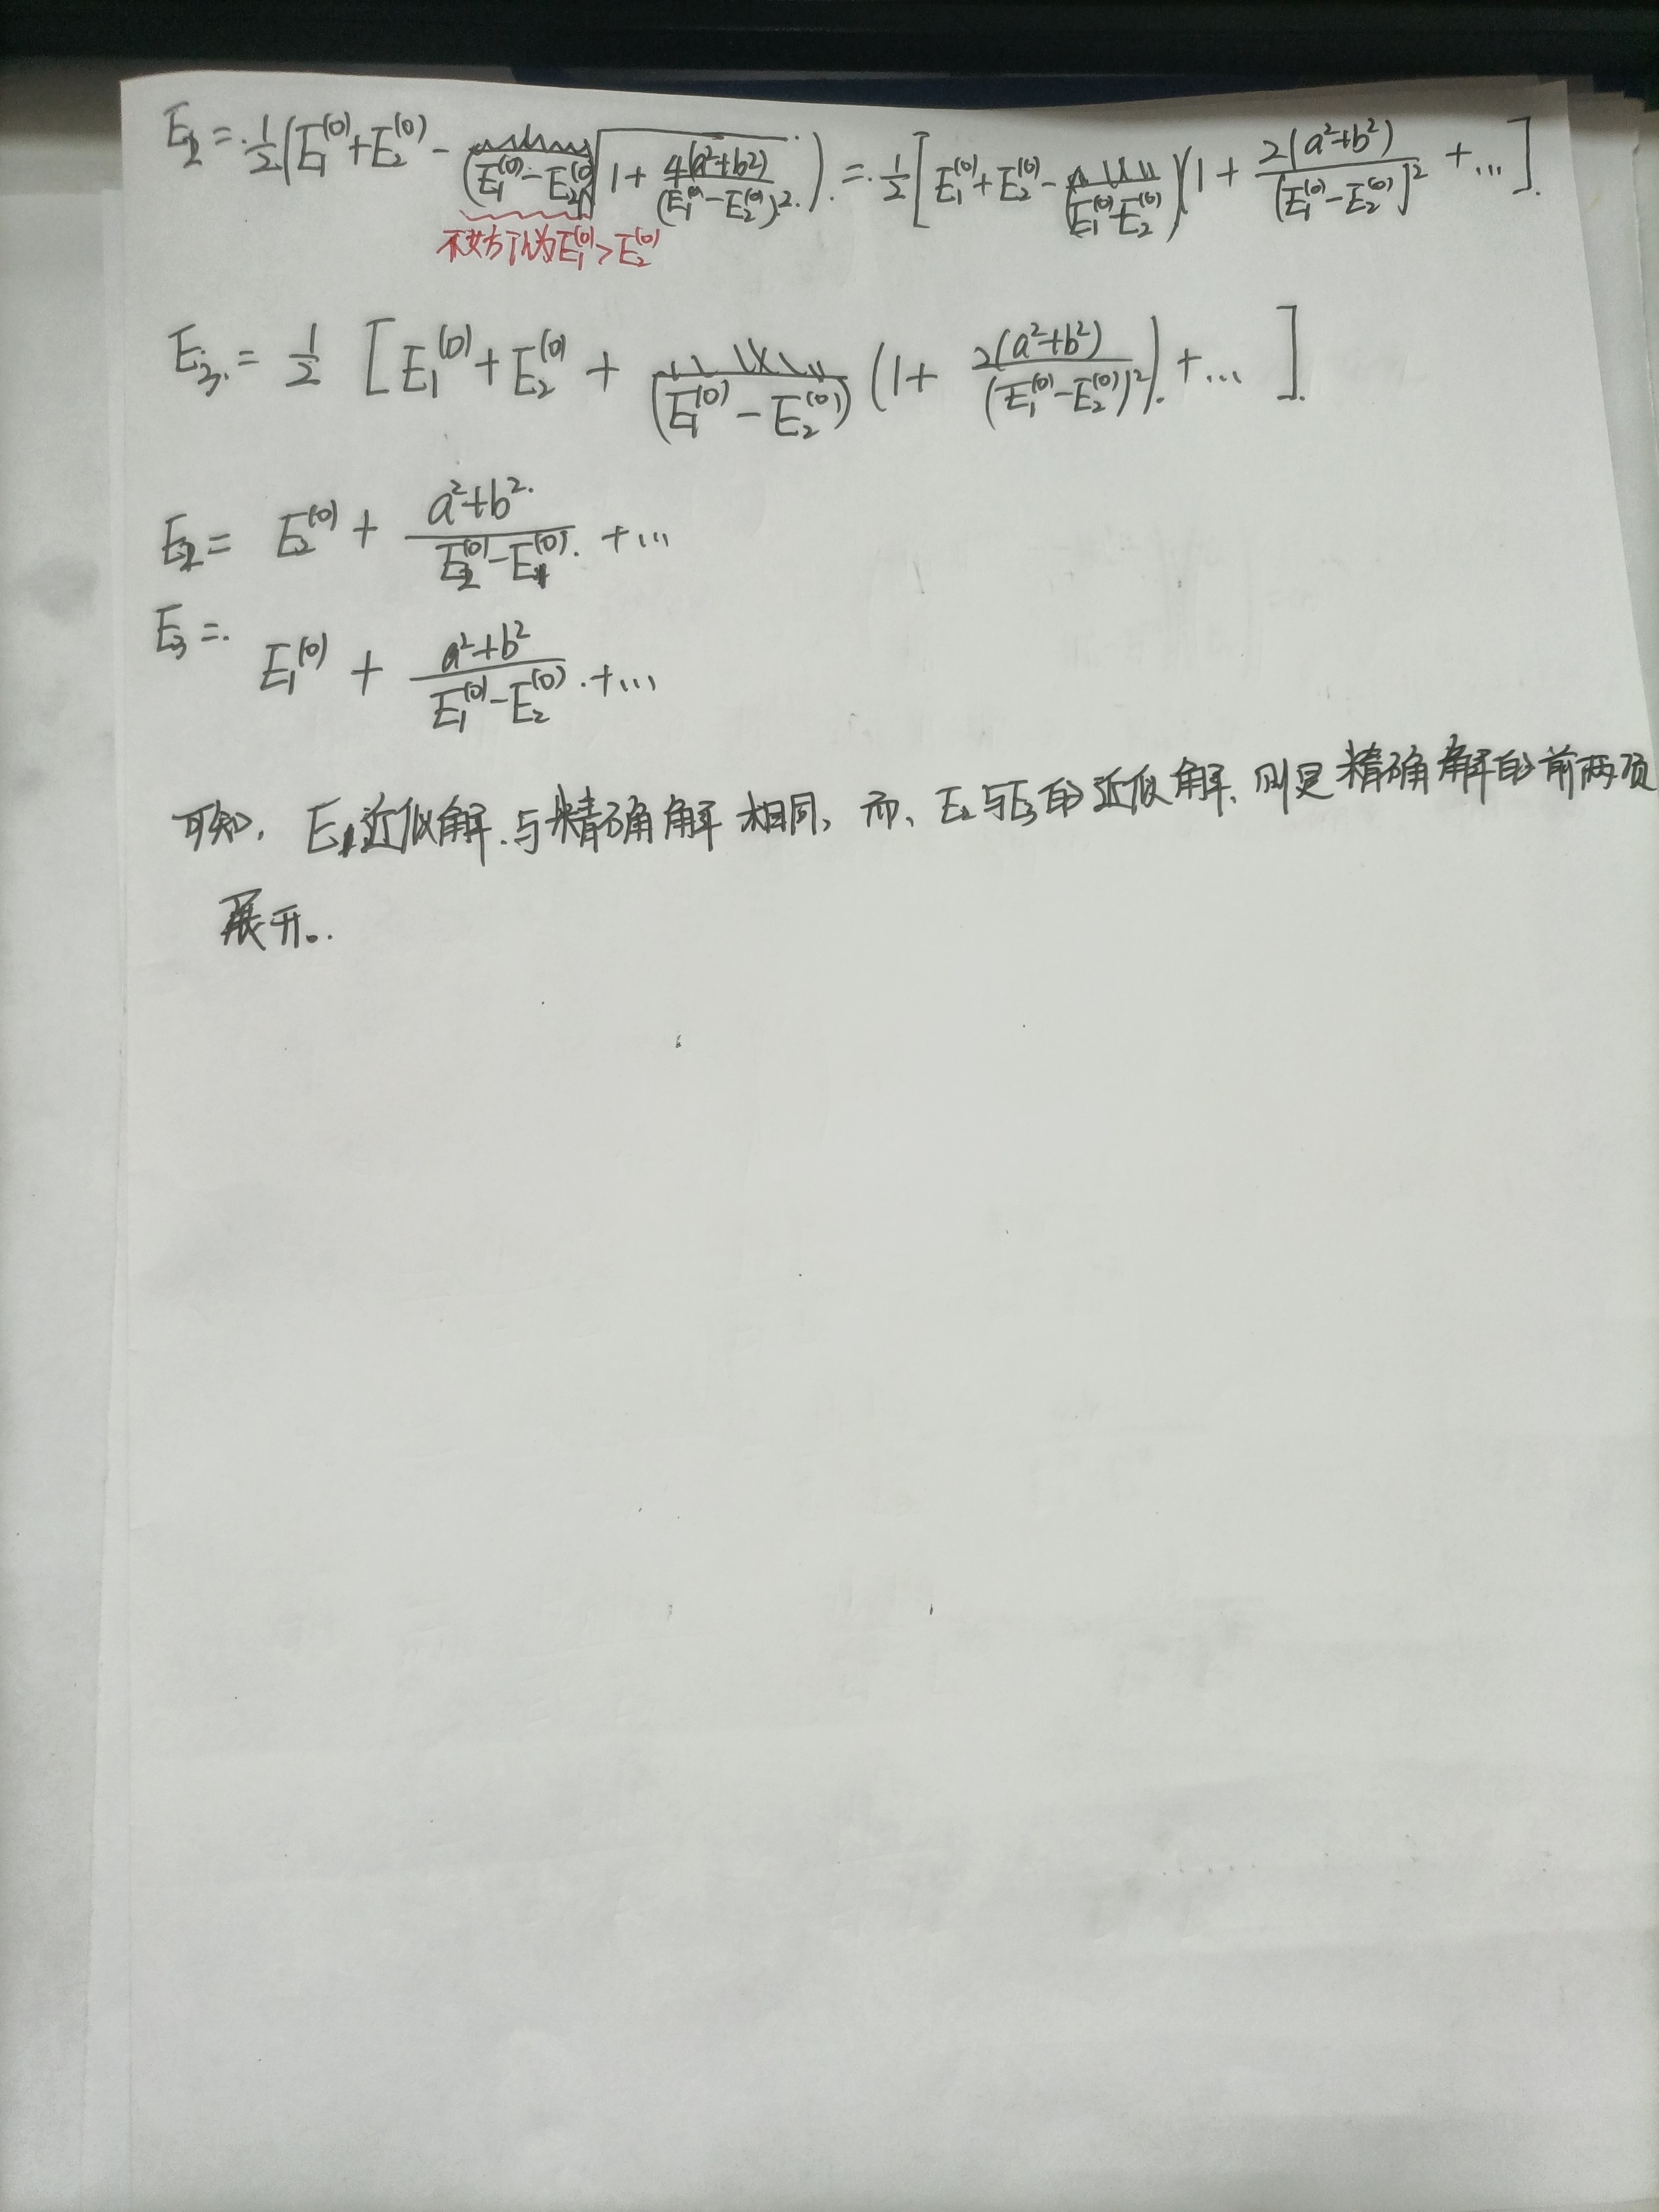 E₂ = ½(E₁⁽⁰⁾+E₂⁽⁰⁾ - (E₁⁽⁰⁾-E₂⁽⁰⁾)√(1+4(a²+b²)/(E₁⁽⁰⁾-E₂⁽⁰⁾)²)) = ½[E₁⁽⁰⁾+E₂⁽⁰⁾ - (E₁⁽⁰⁾-E₂⁽⁰⁾)(1+2(a²+b²)/[E₁⁽⁰⁾-E₂⁽⁰⁾]² + ...]
不妨认为E₁⁽⁰⁾>E₂⁽⁰⁾
E₃ = ½[E₁⁽⁰⁾+E₂⁽⁰⁾ + (E₁⁽⁰⁾-E₂⁽⁰⁾)(1+2(a²+b²)/(E₁⁽⁰⁾-E₂⁽⁰⁾)²) + ...]
E₂ = E₂⁽⁰⁾ + (a²+b²)/(E₂⁽⁰⁾-E₁⁽⁰⁾) + ...
E₃ = E₁⁽⁰⁾ + (a²+b²)/(E₁⁽⁰⁾-E₂⁽⁰⁾) + ...
可知, E₁近似解与精确解相同, 而, E₂与E₃的近似解, 则是精确解的前两项
展开。